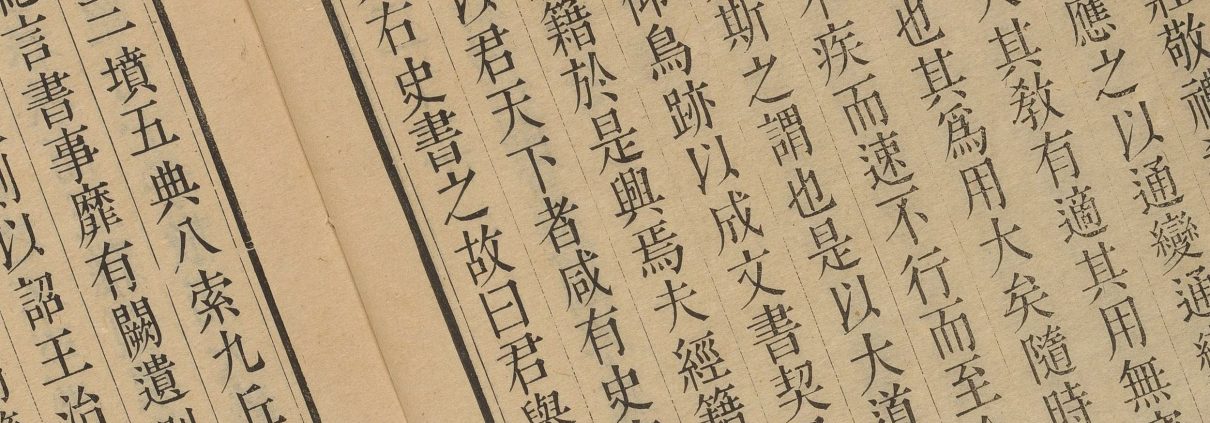 敬禮
應之以通變通
其教有適其用無
也其爲用大矣隨時
不疾而速不行而至
斯之謂也是以大道
仰鳥跡以成文書契
籍於是興焉夫經籍
以君天下者咸有史
右史書之故曰君舉
三墳五典八索九丘
言書事靡有闕遺則
則以詔王治